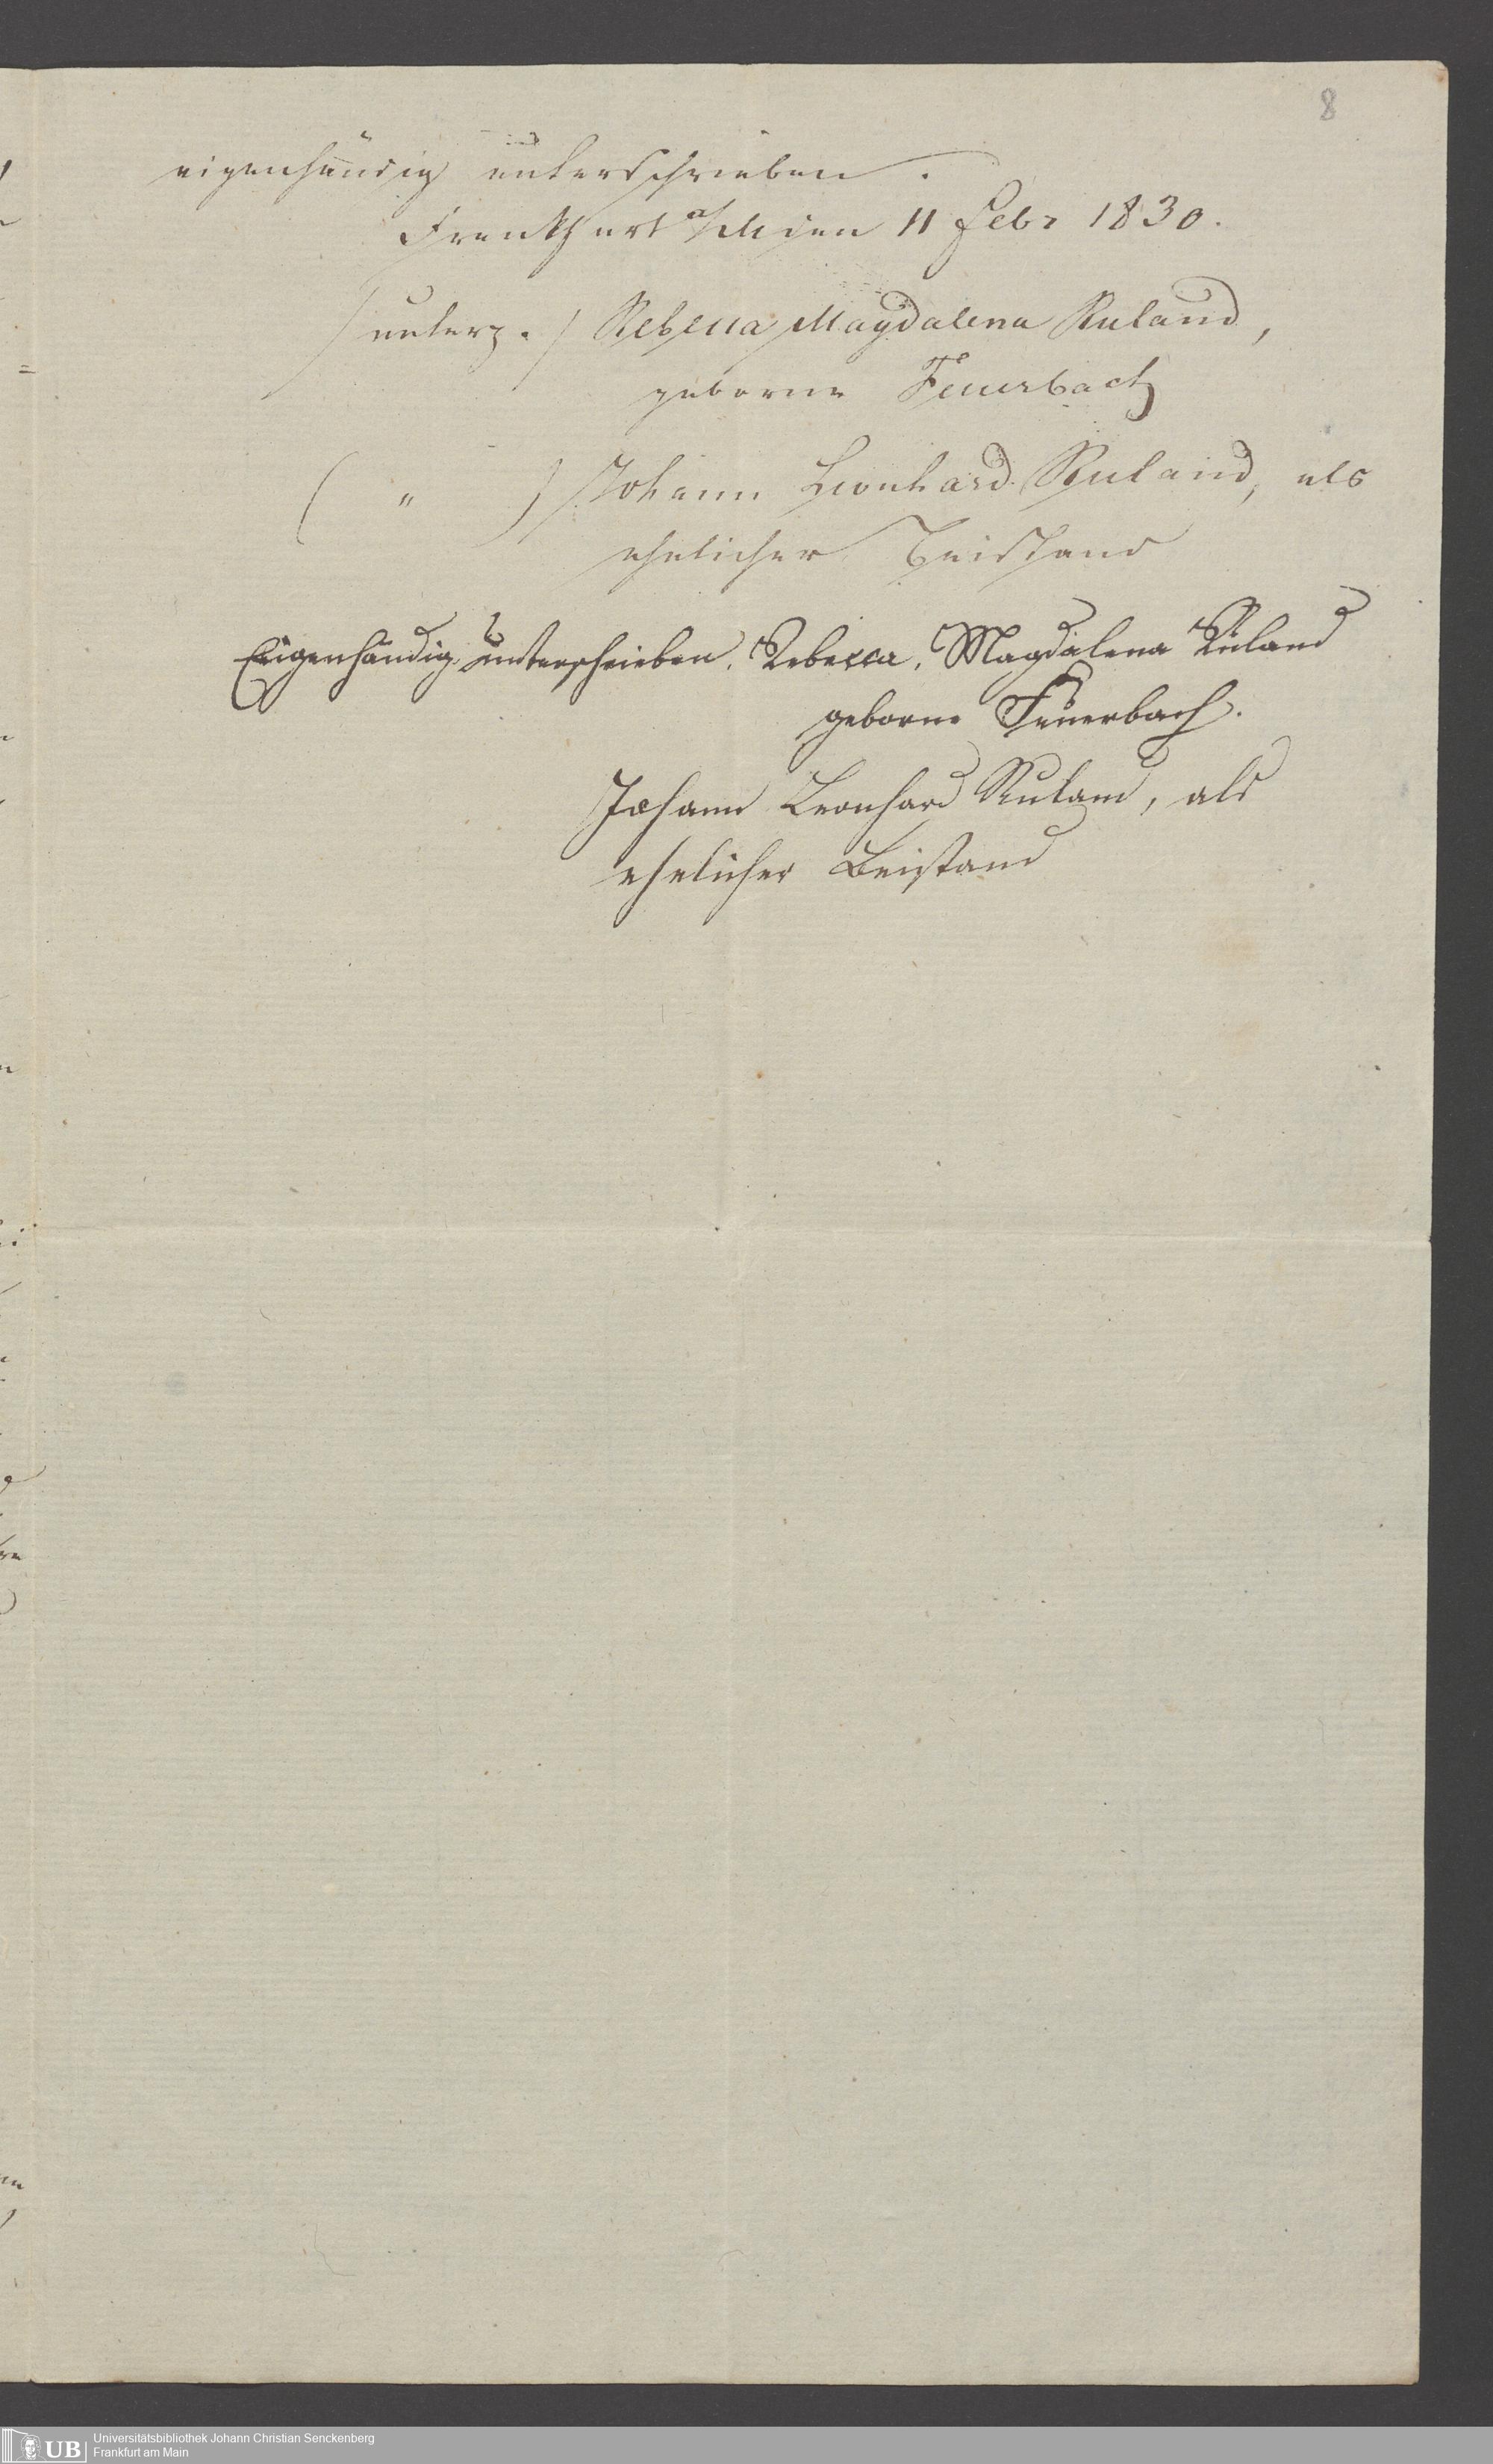 8
eigenhändig unterschrieben.
Frankfurt a/M den 11 Febr 1830.
/ unterz. / Rebecca Magdalena Ruland,
geborne Feuerbach
( " ) Johann Leonhard Ruland, als
ehelicher Beistand
Eigenhändig unterschrieben. Rebecca, Magdalena Ruland
geborne Feuerbach.
Johann Leonhard Ruland, als
ehelicher Beistand
UB
Universitätsbibliothek Johann Christian Senckenberg
Frankfurt am Main